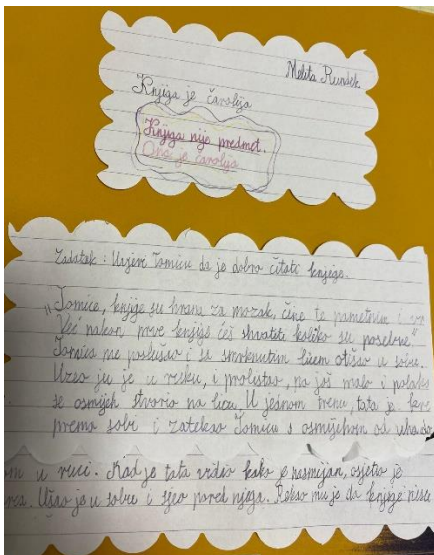 Melita Runjek
Knjiga je čarolija
Knjiga nije predmet.
Ona je čarolija
Zadatak: Uvjeri Tomicu da je dobro čitati knjige.
"Tomice, knjige su hrana za mozak, čine te pametnim i
Već nakon prve knjige ćeš shvatiti koliko su posebne"
Tomica ne poslušao i sa smrknutim licem otišao u sobu.
Uzeo ju je u ruku, i prolistao, pa još malo i polako
se osmijeh stvorio na licu. U jednom trenu, tata je
prema sobi i zatekao Tomicu s osmijehom od uha do
u ruci. Kad je tata vidio kako je nasmijan, osjetio je
Ušao je u sobu i sjeo pored njega. Rekao mu je da knjige nisu